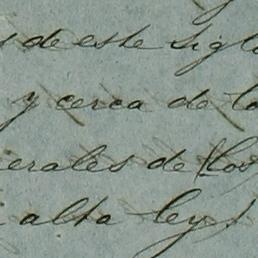 s de este sigl
y cerca de lo
erales de los
alta ley